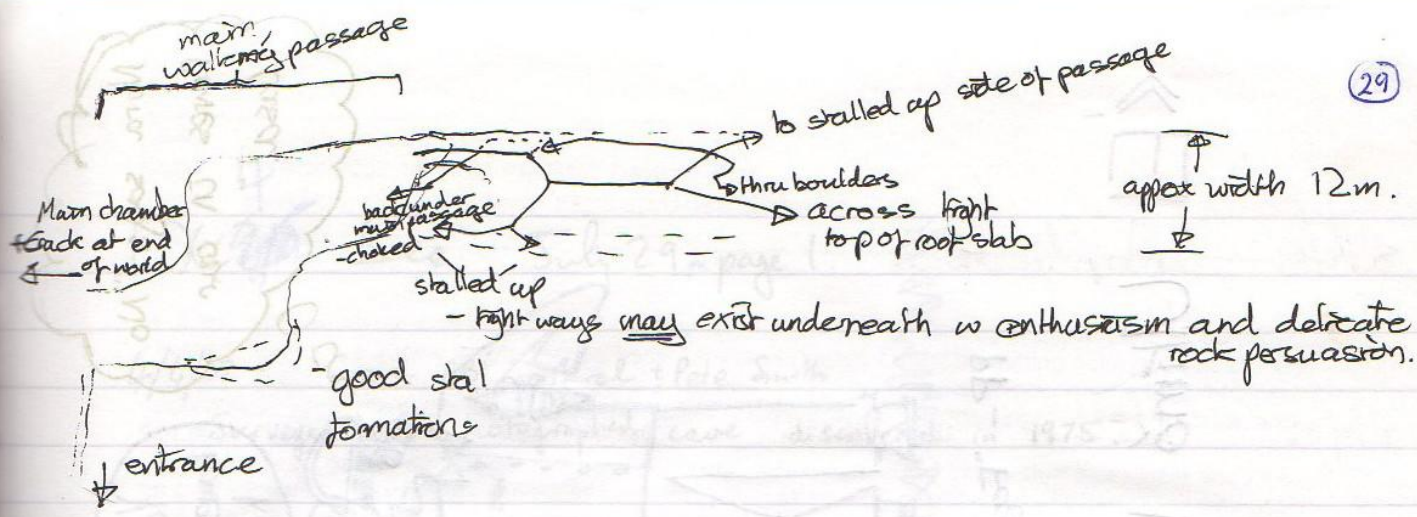 main
walking passage
29
to stalled up side of passage
thru boulders
approx width 12m.
across tight
top of roof slab
Main chamber
+ crack at end
of world
back under
main passage
- choked
stalled up
- tight ways may exist underneath w enthusiasm and delicate
rock persuasion.
- good stal
formations
entrance